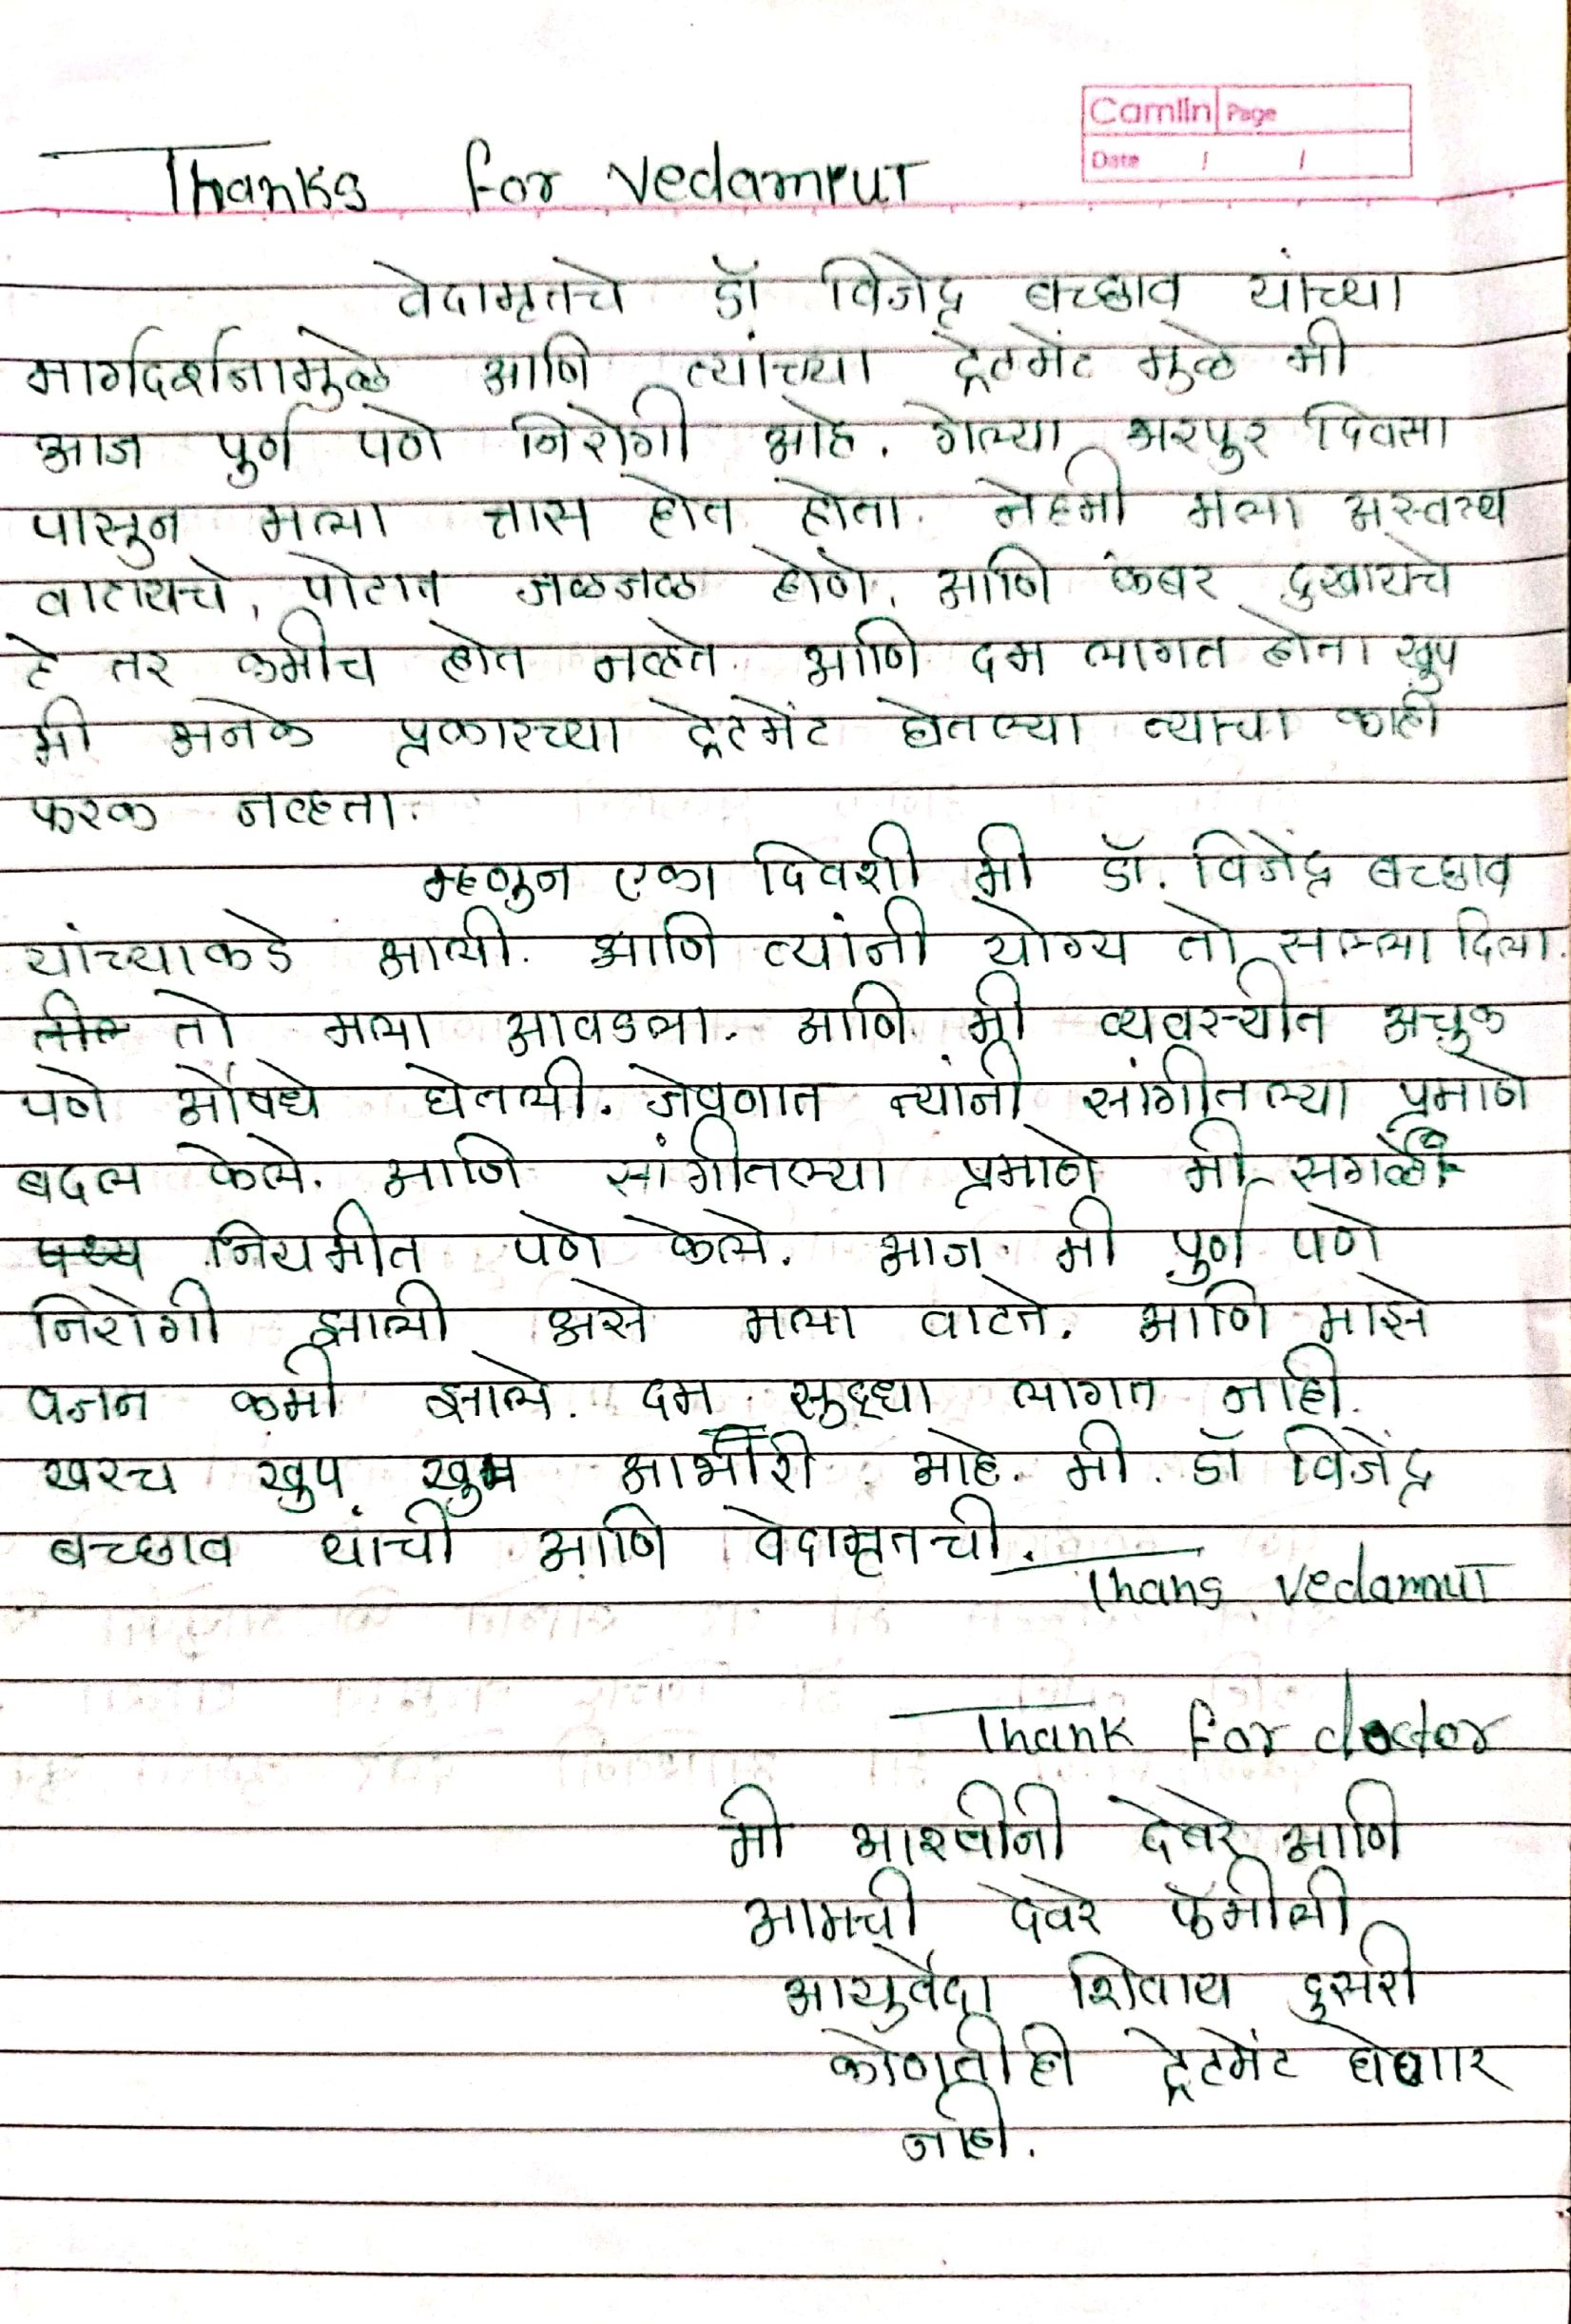 Camlin Page
Date / /
Thanks for vedamrut
वेदामृतचे डॉ विजेंद्र बच्छाव यांच्या
मार्गदर्शनामुळे आणि त्यांच्या ट्रेटमेंट मुळे मी
आज पुर्ण पणे निरोगी आहे. गेल्या भरपुर दिवसा
पासुन मला त्रास होत होता. नेहमी मला अस्वस्थ
वाटायचे, पोटात जळजळ होणे, आणि कंबर दुखायचे
ते तर कमीच होत नव्हते. आणि दम लागत होता खुप
मी अनेक प्रकारच्या ट्रेटमेंट घेतल्या त्याचा काही
फरक नव्हता.
म्हणुन एका दिवशी मी डॉ. विजेंद्र बच्छाव
यांच्याकडे आली. आणि त्यांनी योग्य तो सल्ला दिला.
तो मला आवडला. आणि मी व्यवस्थीत अचुक
पणे औषधे घेतली. जेवणात त्यांनी सांगीतल्या प्रमाणे
बदल केले. आणि सांगीतल्या प्रमाणे मी सगळे
पथ्य नियमीत पणे केले. आज मी पुर्ण पणे
निरोगी झाली असे मला वाटते. आणि माझे
वजन कमी झाले. दम सुद्धा लागत नाही.
खरच खुप खुप आभारी आहे. मी. डॉ विजेंद्र
बच्छाव यांची आणि वेदामृतची.
Thans vedamrut
Thank for doctor
मी आश्वीनी देवरे आणि
आमची देवरे फॅमीली
आयुर्वेदा शिवाय दुसरी
कोणतीही ट्रेटमेंट घेणार
नाही.